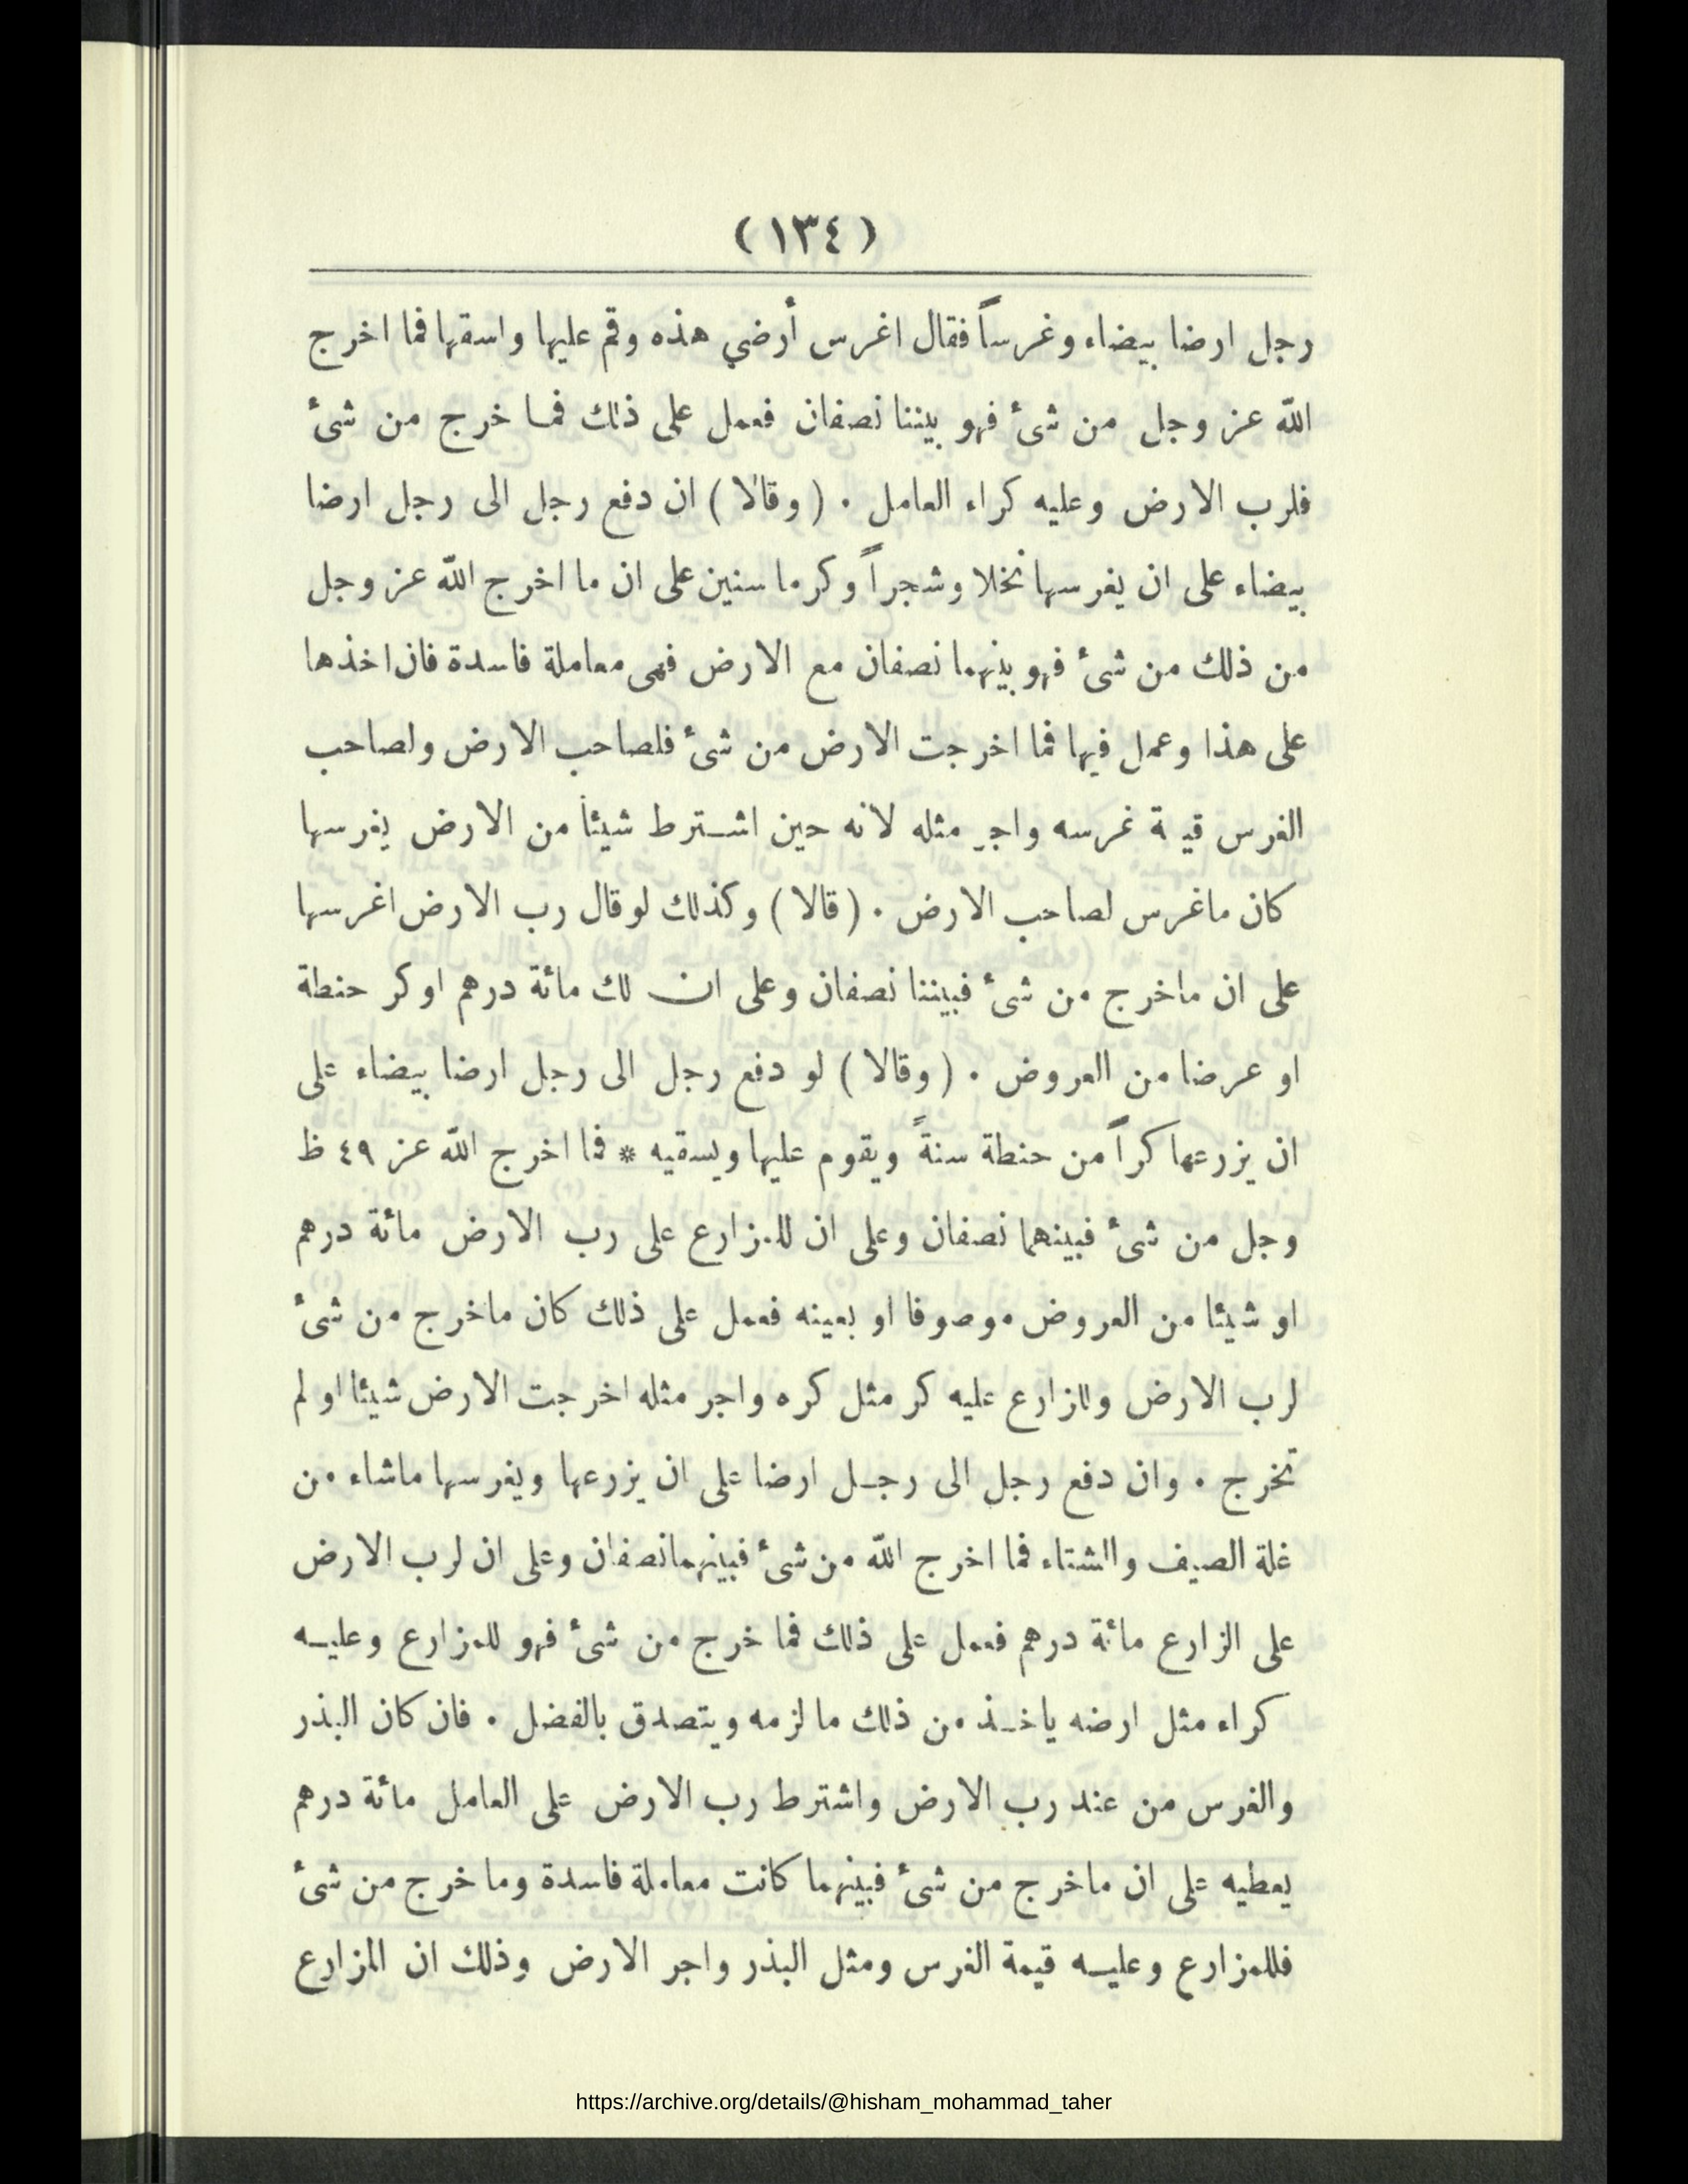 (١٣٤)
رجل ارضا بيضاء وغرساً فقال اغرس أرضي هذه وقم عليها واسقها فما اخرج
الله عز وجل من شئ فهو بيننا نصفان فعمل على ذلك فما خرج من شئ
فلرب الارض وعليه كراء العامل . (وقالا) ان دفع رجل الى رجل ارضا
بيضاء على ان يغرسها نخلا وشجراً وكرما سنين على ان ما اخرج الله عز وجل
من ذلك من شئ فهو بينهما نصفان مع الارض فهى معاملة فاسدة فان اخذها
على هذا وعمل فيها فما اخرجت الارض من شئ فلصاحب الارض ولصاحب
الغرس قيمة غرسه واجر مثله لانه حين اشترط شيئا من الارض يغرسها
كان ماغرس لصاحب الارض . (قالا) وكذلك لو قال رب الارض اغرسها
على ان ماخرج من شئ فبيننا نصفان وعلى ان لك مائة درهم او كر حنطة
او عرضا من العروض . (وقالا) لو دفع رجل الى رجل ارضا بيضاء على
ان يزرعها كراً من حنطة سنةً ويقوم عليها ويسقيه * فما اخرج الله عز ٤٩ ظ
وجل من شئ فبينهما نصفان وعلى ان للمزارع على رب الارض مائة درهم
او شيئا من العروض موصوفا او بعينه فعمل على ذلك كان ماخرج من شئ
لرب الارض وللزارع عليه كر مثل كره واجر مثله اخرجت الارض شيئا او لم
تخرج . وان دفع رجل الى رجل ارضا على ان يزرعها ويغرسها ماشاء من
غلة الصيف والشتاء فما اخرج الله من شئ فبينهما نصفان وعلى ان لرب الارض
على الزارع مائة درهم فعمل على ذلك فما خرج من شئ فهو للمزارع وعليه
كراء مثل ارضه ياخذ من ذلك ما لزمه ويتصدق بالفضل . فان كان البذر
والغرس من عند رب الارض واشترط رب الارض على العامل مائة درهم
يعطيه على ان ماخرج من شئ فبينهما كانت معاملة فاسدة وما خرج من شئ
فللمزارع وعليه قيمة الغرس ومثل البذر واجر الارض وذلك ان المزارع
https://archive.org/details/@hisham_mohammad_taher